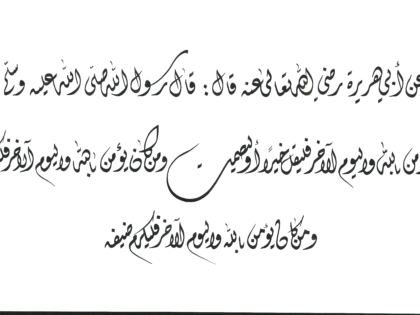 عن أبي هريرة رضي الله تعالى عنه قال : قال رسول الله صلى الله عليه وسلم
من بالله واليوم الآخر فليقل خيراً أو ليصمت ومن كان يؤمن بالله واليوم الآخر
ومن كان يؤمن بالله واليوم الآخر فليكرم ضيفه